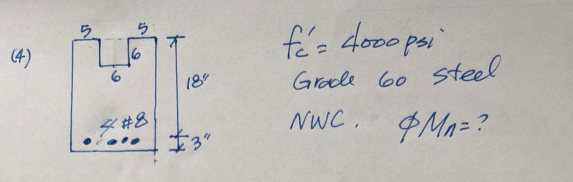 (4)
5 5
6
6
18"
3"
4 #8
fc' = 4000 psi
Grade 60 steel
NWC. φMn = ?